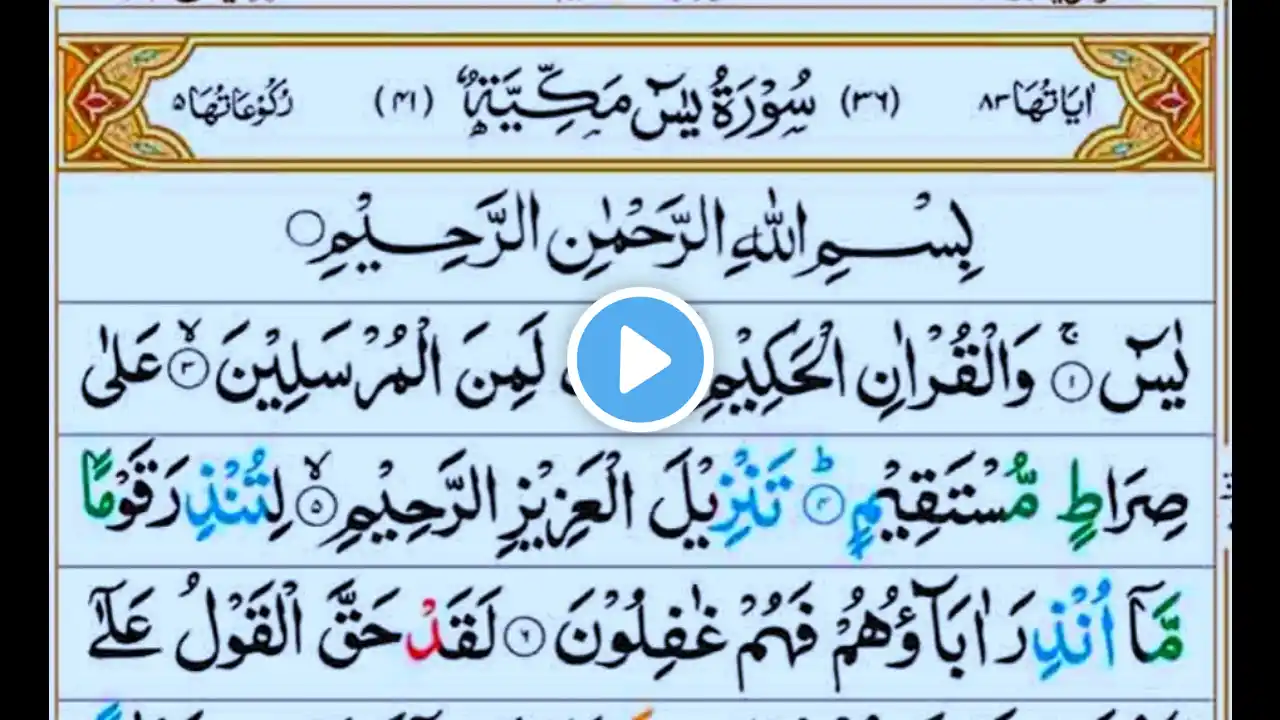 اٰيَاتُهَا ٨٣ (٣٦) سُوْرَةُ يٰسٓ مَكِّيَّةٌ (٤١) رُكُوْعَاتُهَا ٥
بِسْمِ اللّٰهِ الرَّحْمٰنِ الرَّحِيْمِ
يٰسٓ ۚ ١ وَالْقُرْاٰنِ الْحَكِيْمِ لَمِنَ الْمُرْسَلِيْنَ ۙ ٣ عَلٰى
صِرَاطٍ مُّسْتَقِيْمٍ ؕ ٤ تَنْزِيْلَ الْعَزِيْزِ الرَّحِيْمِ ۙ ٥ لِتُنْذِرَ قَوْمًا
مَّآ اُنْذِرَ اٰبَآؤُهُمْ فَهُمْ غٰفِلُوْنَ ٦ لَقَدْ حَقَّ الْقَوْلُ عَلٰٓى